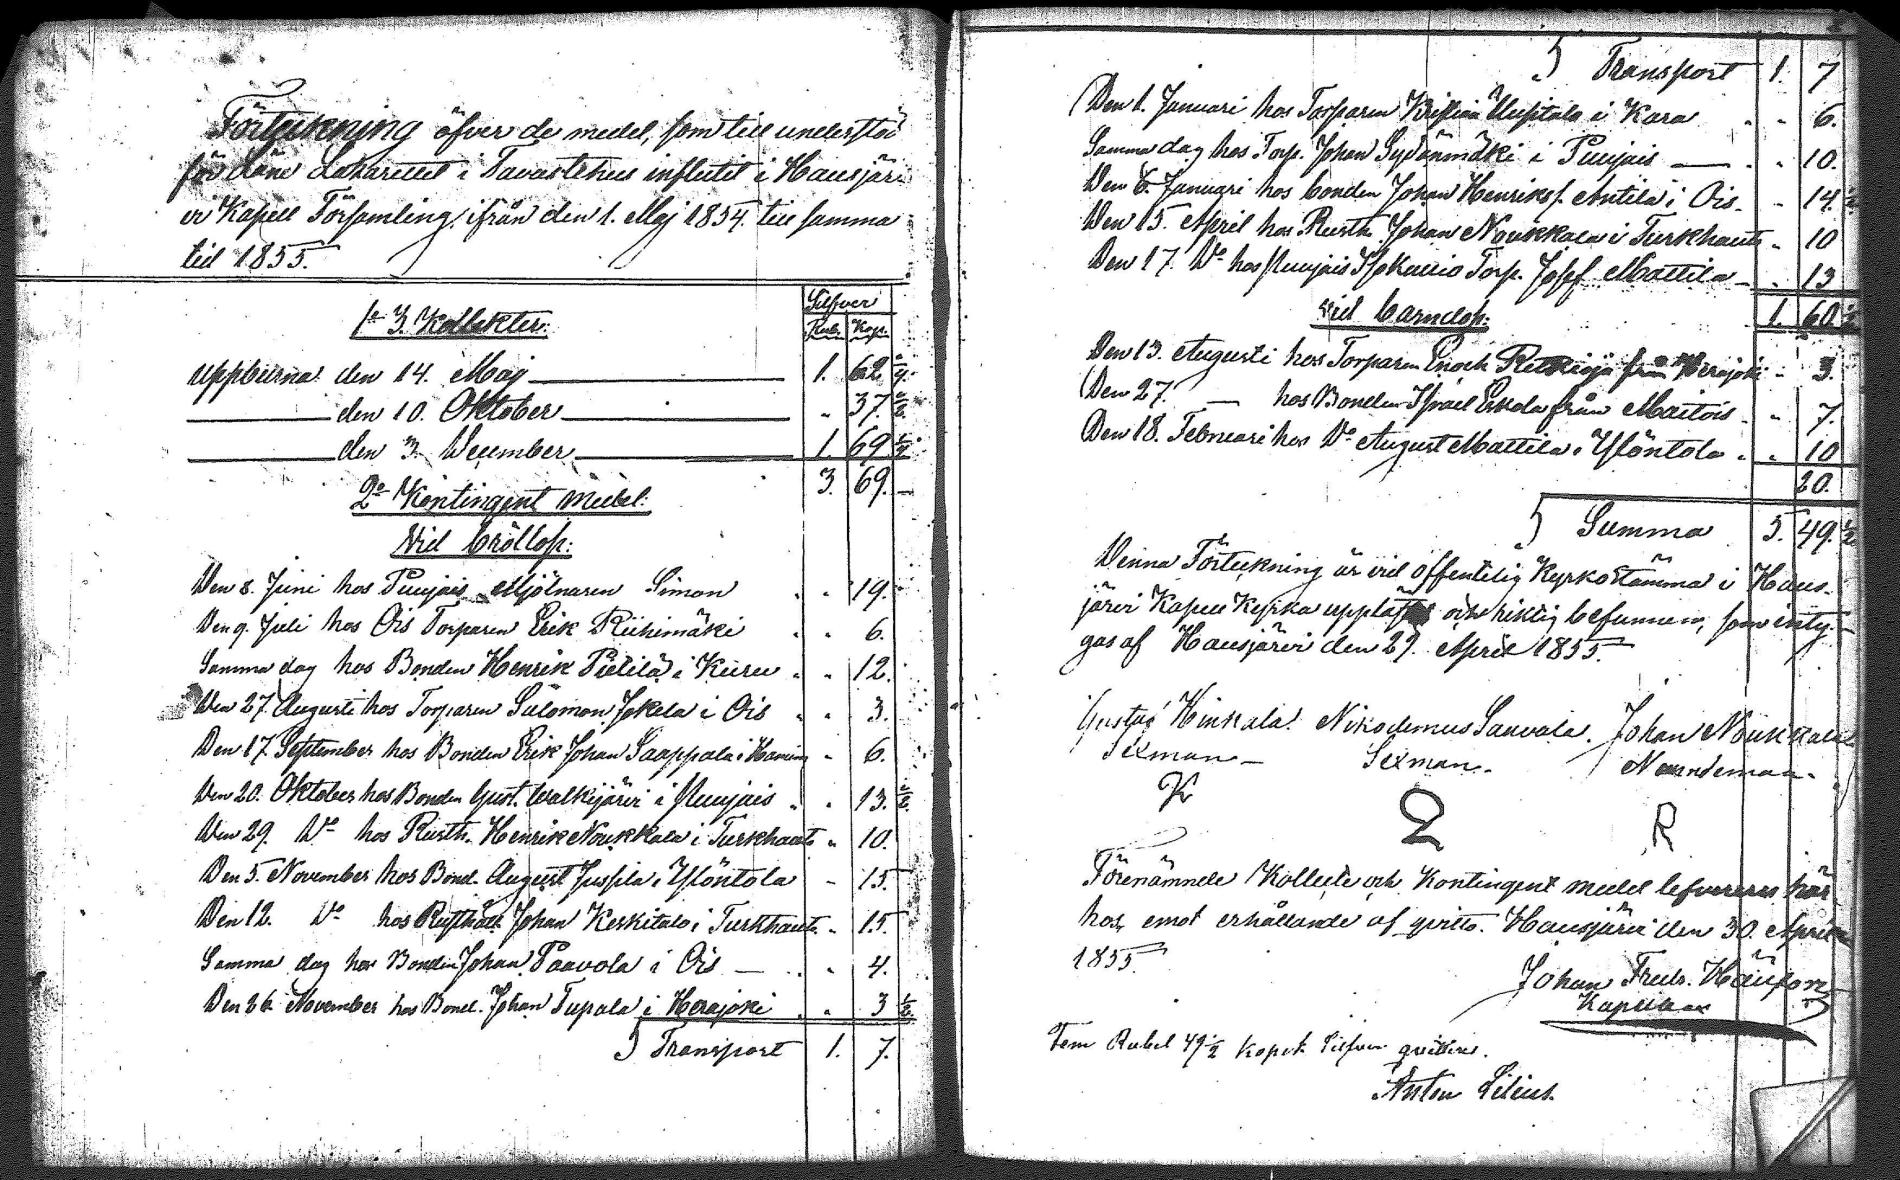 Förteckning öfver de medel, som till understöd
för Läne Lazarettet i Tavastehus influtit i Hausjär
vi Kapell Församling ifrån den 1. Maj 1854. till samma
tid 1855.
Silfver
Rub. Kop.
1o 3. Kollekter:
uppburna den 14. Maj 1. 62
den 10. Oktober " 37. 1/2
den 3. December 1. 69
3. 69. —
2o Kontingent medel:
Vid bröllop:
Den 8. Juni hos Puujais Mjölnaren Simon " " 19.
Den 9. Juli hos Ois Torparen Erik Riihimäki " " 6.
Samma dag hos Bonden Henrik Pietilä i Kuru " " 12.
Den 27. Augusti hos Torparen Salomon Jokela i Ois " " 3.
Den 17. September hos Bonden Erik Johan Saappala i " 6.
Den 20. Oktober hos Bonden Gust. Walkijärvi i Puujais " " 13. 1/2
Den 29. Do hos Rusth. Henrik Noukkala i Turkhauta " 10.
Den 5. November hos Bond. August Jussila i Ylöntola " 15.
Den 12. Do hos Rusthåll. Johan Keskitalo i Turkhauta " 15.
Samma dag hos Bonden Johan Paavola i Ois — " " 4.
Den 26. November hos Bond. Johan Tupala i Herajoki " " 3 1/2
Transport 1. 7.
Transport 1. 7
Den 1. Januari hos Torparen Kristian Uusitalo i Kara " " 6.
Samma dag hos Torp. Johan Sydänmäki i Puujais — " " 10.
Den 6. Januari hos bonden Johan Henrikss. Antila i Ois " 14. 1/2
Den 15. April hos Rusth. Johan Noukkala i Turkhauta " 10
Den 17. Do hos Puujais Isokallio Torp. Josef Mattila " 13
1. 60. 1/2
Vid barndop:
Den 13. Augusti hos Torparen Enoch från Herajoki " 3.
Den 27. — hos Bonden Israel Erkola från Maitois " " 7.
Den 18. Februari hos Do August Mattila i Ylöntola " " 10
20.
Summa 5. 49. 1/2
Denna Förteckning är vid offentelig Kyrkostämma i Haus-
järvi Kapell Kyrka uppläst och riktig befunnen, som inty-
gas af Hausjärvi den 29. April 1855.
Gustaf Hinkala. Nikodemus Sauvala. Johan Noukkala
Sexman — Sexman. Nämndeman.
K Q R
Förenämnde Kollekte och Kontingent medel lefvereras här
hos, emot erhållande af qvitto. Hausjärvi den 30. April
1855.
Johan Fredr.
Kapellan
Fem Rubel 49 1/2 Kopek Silfver qvitteras.
Anton